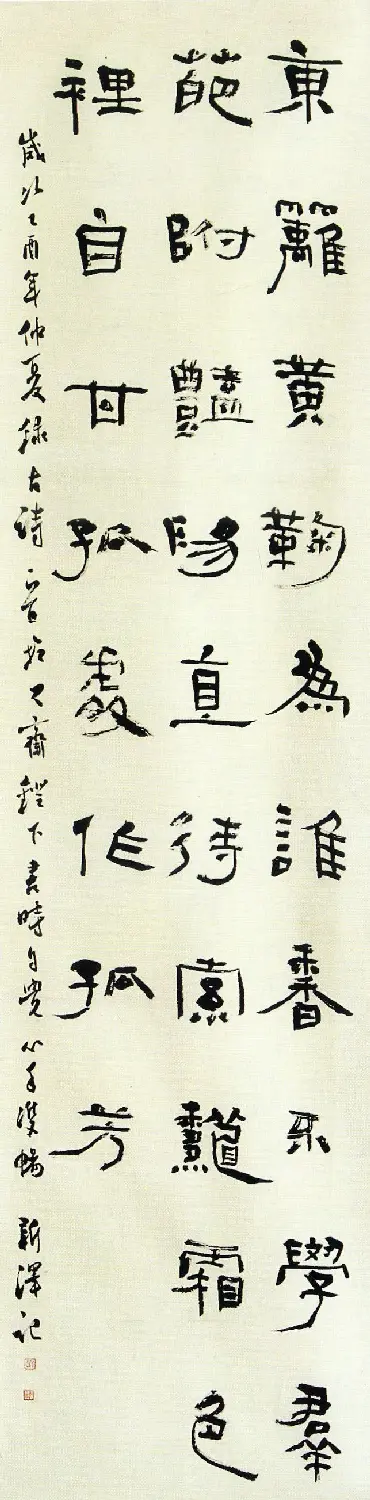 東籬黃鞠為誰香不學羣
葩附豔陽直待索龝霜色
裡自甘孤處作孤芳
歲次乙酉年仲夏錄古詩一首於齋鐙下書時自覺心手雙暢 新澤記